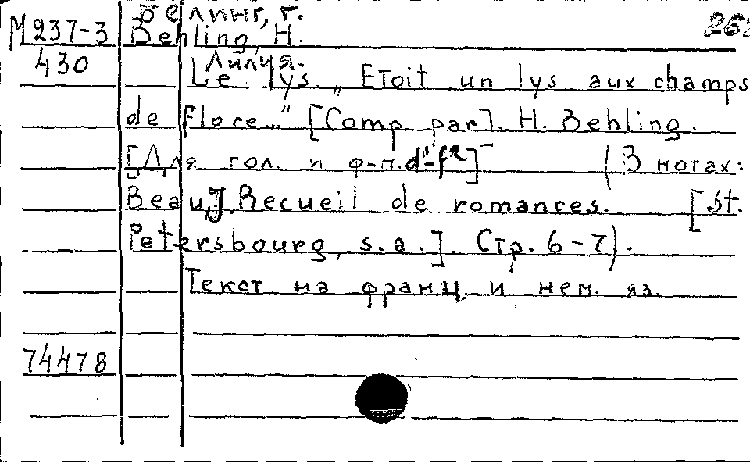 Белинг, Г.
М 237-3 Behling, H.
430 Лилия.
Le lys „Etoit un lys aux champs
de Flore..." [Comp. par]. H. Behling.
[Для гол. и ф-п. d¹-f²] (В нотах:
Beau, J. Recueil de romances. [St.
Petersbourg, s.a.]. Стр. 6-7).
Текст на франц. и нем. яз.
74478